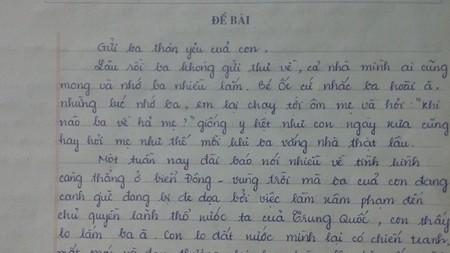 ĐỀ BÀI
Gửi ba thân yêu của con.
Lâu rồi ba không gửi thư về, cả nhà mình ai cũng
mong và nhớ ba nhiều lắm. Bé Ốc cứ nhắc ba hoài ạ,
những lúc nhớ ba, em lại chạy tới ôm mẹ và hỏi: "khi
nào ba về hả mẹ?" giống y hệt như con ngày xưa cũng
hay hỏi mẹ như thế mỗi khi ba vắng nhà thật lâu.
Một tuần nay đài báo nói nhiều về tình hình
căng thẳng ở biển Đông - vùng trời mà ba của con đang
canh giữ đang bị đe dọa bởi việc làm xâm phạm đến
chủ quyền lãnh thổ nước ta của Trung Quốc, con thấy
lo lắm ba ạ. Con lo đất nước mình lại có chiến tranh,
mất mát và đau thương